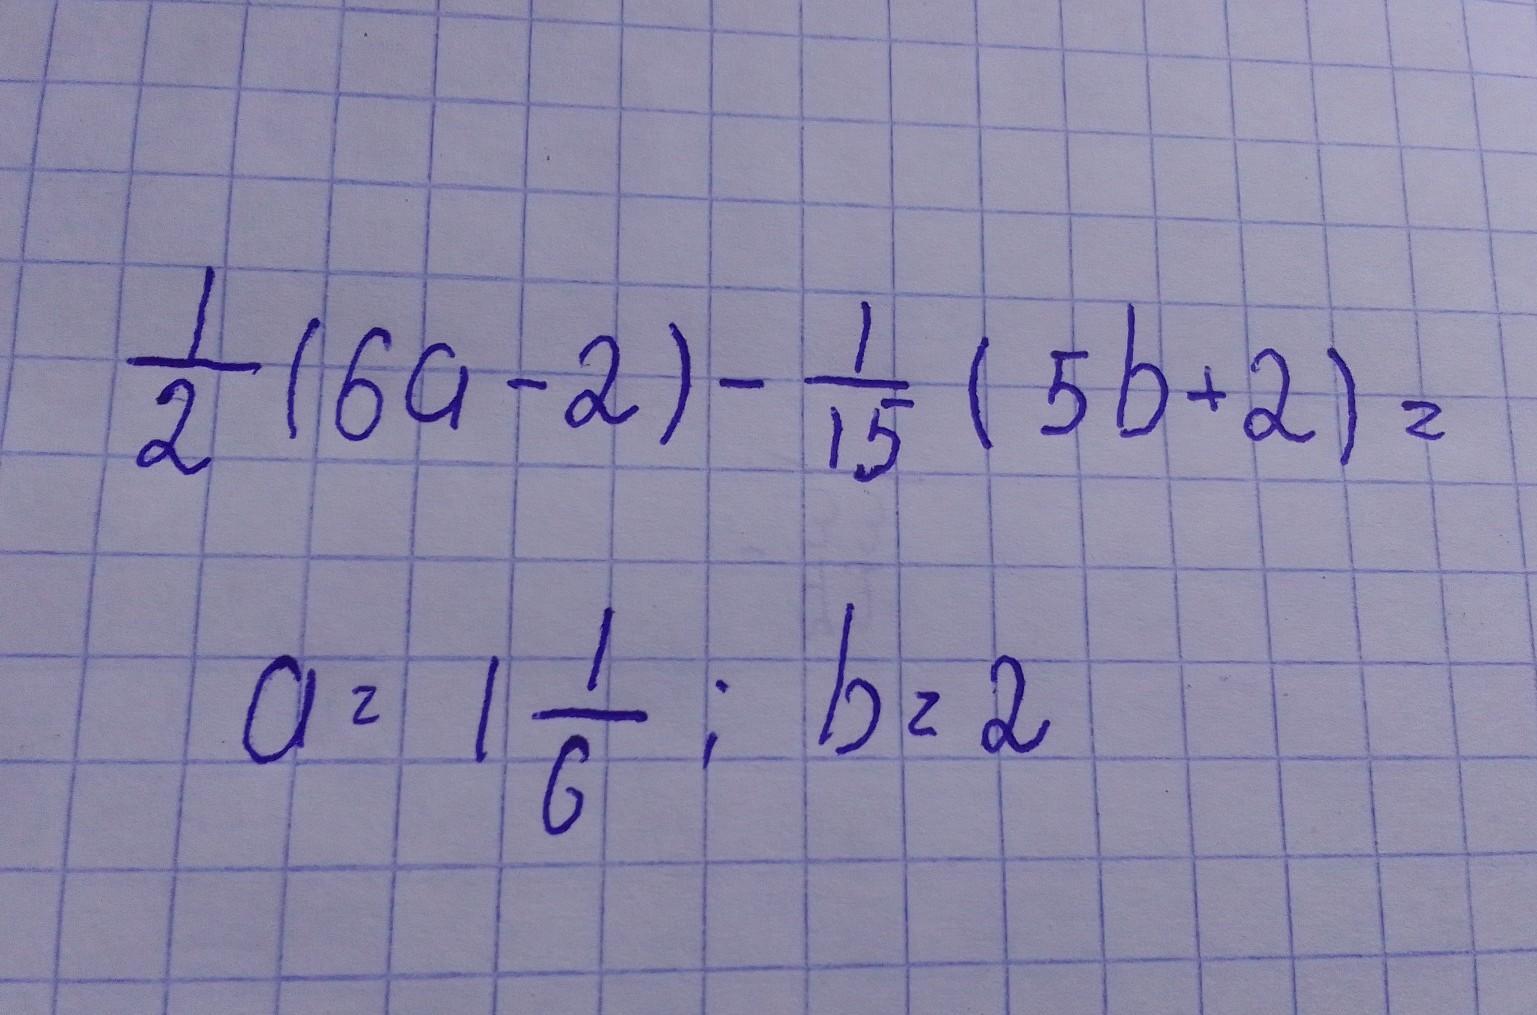 1/2 (6a - 2) - 1/15 (5b + 2) =
a = 1 1/6 ; b = 2